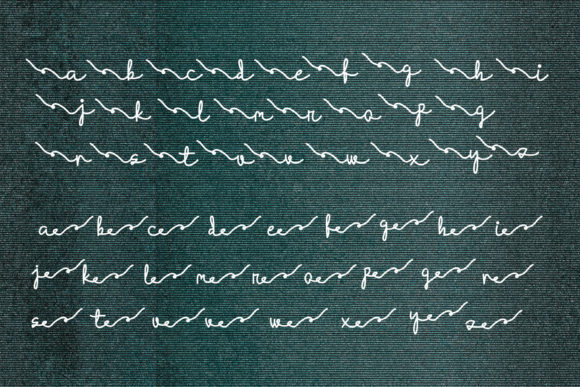 a b c d e f g h i
j k l m n o p q
r s t u v w x y z
ae be ce de ee fe ge he ie
je ke le me ne oe pe qe re
se te ue ve we xe ye ze